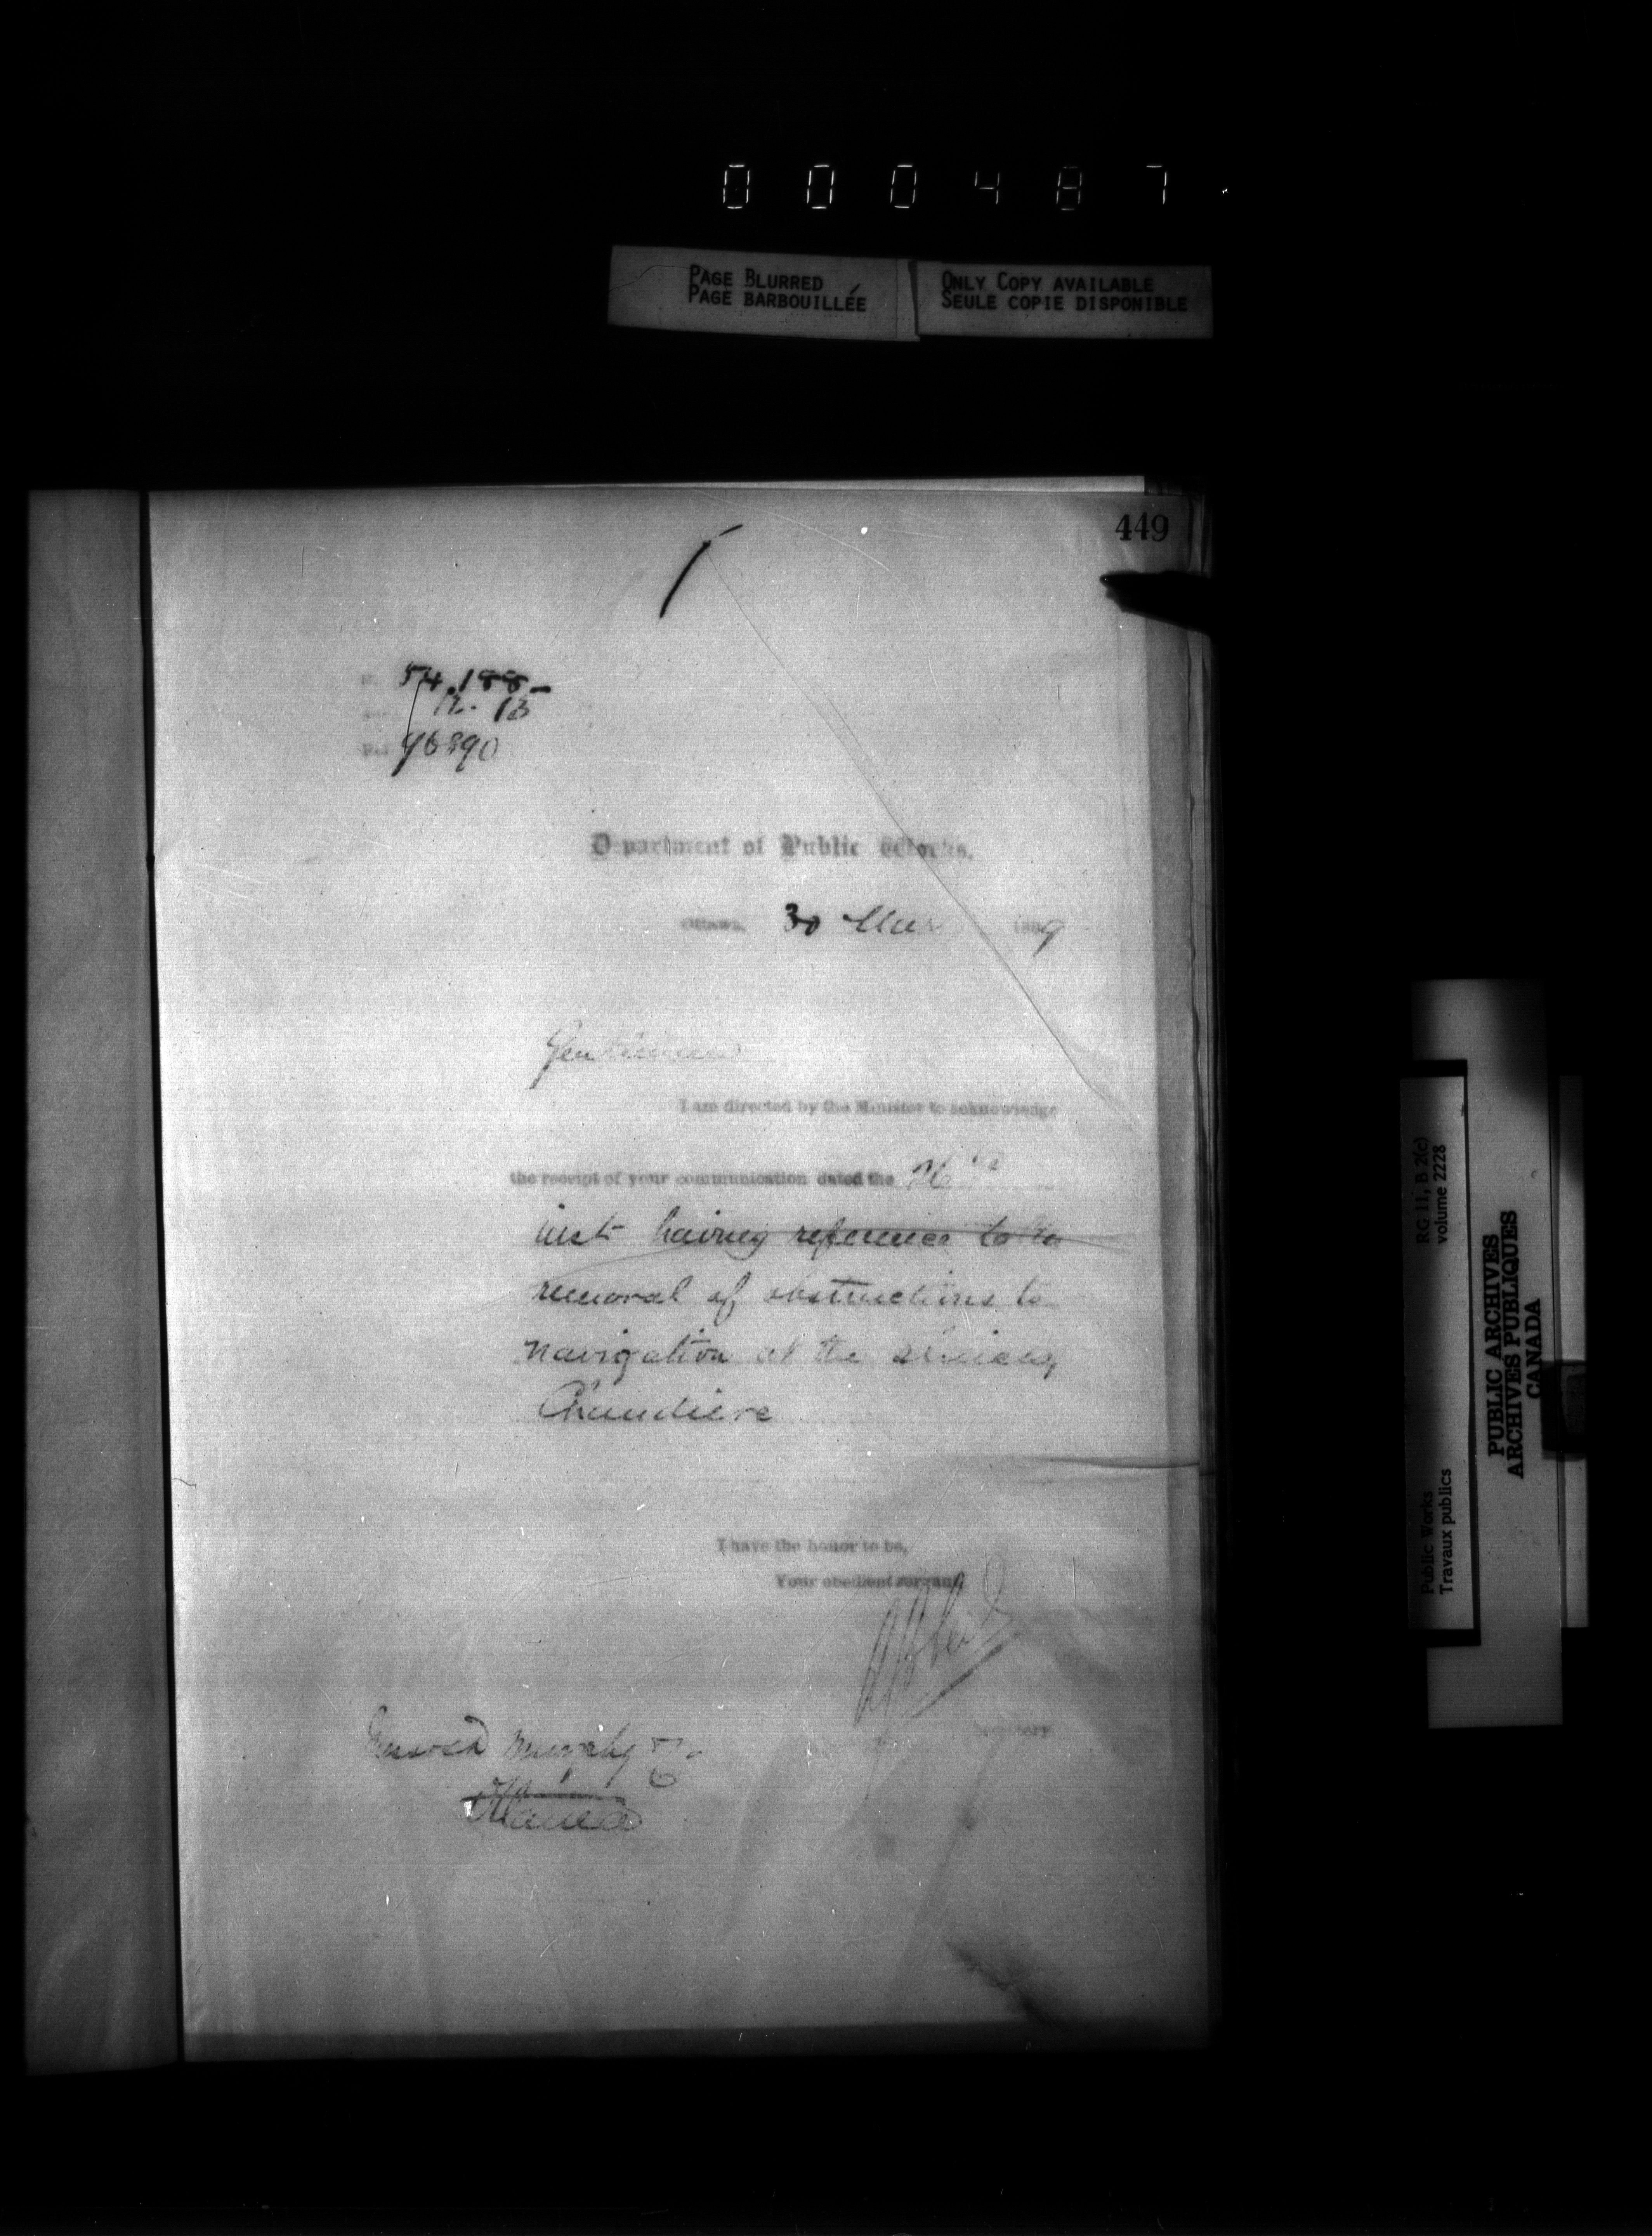 000487
PAGE BLURRED
PAGE BARBOUILLÉE
ONLY COPY AVAILABLE
SEULE COPIE DISPONIBLE
449
54.188-
96890
Department of Public Works.
Ottawa, 30 Mar 1889
Gentlemen
I am directed by the Minister to acknowledge
the receipt of your communication dated the 26th
inst having reference to the
removal of obstructions to
navigation at the
Chaudiere
I have the honor to be,
Your obedient servant
Secretary
Murphy & Co
Ottawa
RG 11, B 2(c)
volume 2228
Public Works
Travaux publics
PUBLIC ARCHIVES
ARCHIVES PUBLIQUES
CANADA